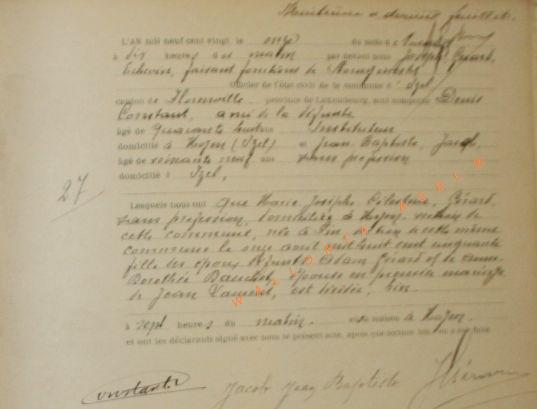 Huitième et dernier feuillet.
L'AN mil neuf cent vingt, le onze du mois d
à dix heures du matin par devant nous Joseph Gérard,
Echevin, faisant fonctions de Bourgmestre
officier de l'état civil de la commune d'Izel,
canton de Florenville province de Luxembourg, sont comparus Denis
Constant, ami de la défunte
âgé de quarante huit ans Instituteur
domicilié à Moyen (Izel) et Jean Baptiste, Jacob,
âgé de soixante neuf ans sans profession
domicilié à Izel,
27
Lesquels nous ont que Marie Josèphe Célestine, Gérard,
sans profession, domiciliée à Moyen, section de
cette commune, née à Pin, section de cette même
commune le onze août mil huit cent cinquante
fille des époux défunts Adam Gérard et de Anne
Dorothée épouse en première mariage
de Jean est décédée, hier
à sept heures du matin. en sa maison à Moyen
et ont les déclarants signé avec nous le présent acte, après que lecture leur en a été faite
Constant
Jacob Jean Baptiste J Gérard